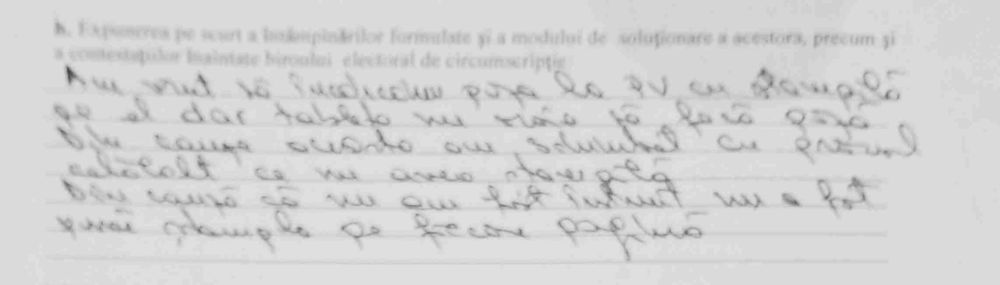 h. Expunerea pe scurt a întâmpinărilor formulate şi a modului de soluţionare a acestora, precum şi
a contestaţiilor înaintate biroului electoral de circumscripţie
Am vrut să încărcăm poza la PV cu ștampilă
pe el dar tableta nu a să facă poză
Din cauza aceasta am schimbat cu
celălalt ce nu avea ștampilă
Din cauză că nu am fost nu a fost
pusă ștampila pe fiecare pagină